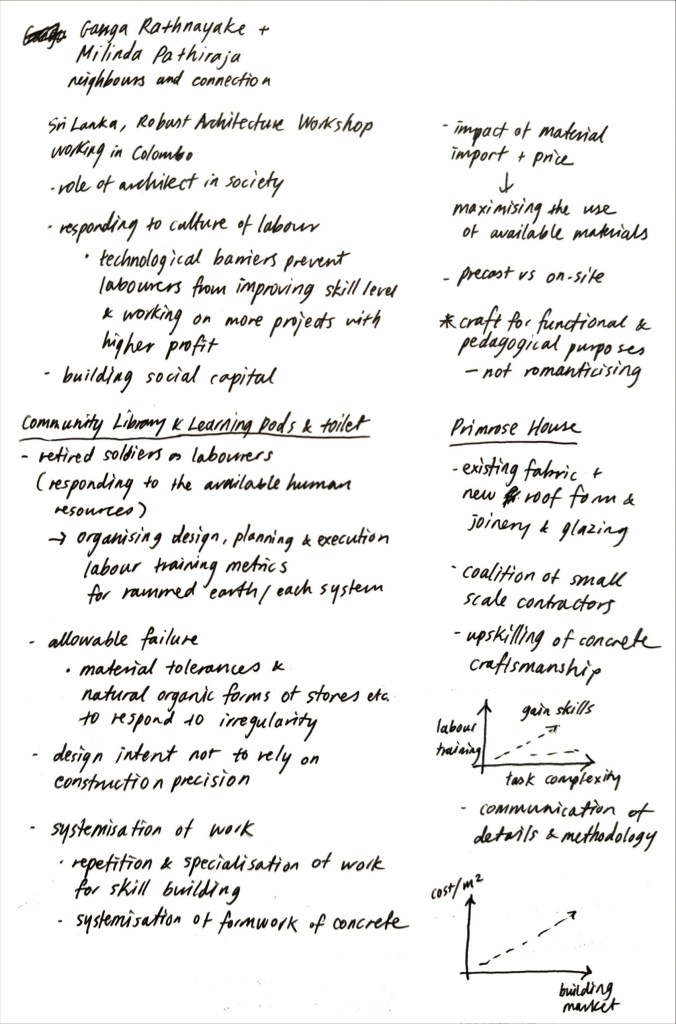 Ganga Rathnayake +
Milinda Pathiraja
neighbours and connection
Sri Lanka, Robust Architecture Workshop
working in Colombo
- role of architect in society
- responding to culture of labour
• technological barriers prevent
labourers from improving skill level
& working on more projects with
higher profit
- building social capital
Community Library & Learning Pods & toilet
- retired soldiers as labourers
(responding to the available human
resources)
→ organising design, planning & execution
labour training metrics
for rammed earth/each system
- allowable failure
• material tolerances &
natural organic forms of stores etc.
to respond to irregularity
- design intent not to rely on
construction precision
- systemisation of work
• repetition & specialisation of work
for skill building
- systemisation of formwork of concrete
- impact of material
import + price
↓
maximising the use
of available materials
- precast vs on-site
* craft for functional &
pedagogical purposes
— not romanticising
Primrose House
- existing fabric +
new roof form &
joinery & glazing
- coalition of small
scale contractors
- upskilling of concrete
craftsmanship
gain skills
labour
training
task complexity
- communication of
details & methodology
cost/m²
building
market